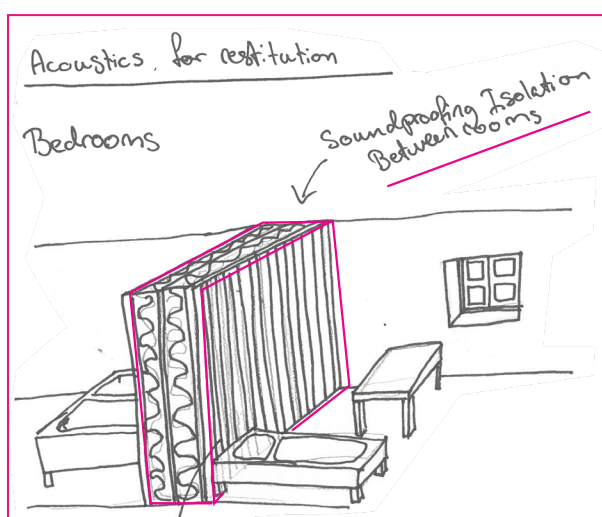 Acoustics, for restitution
Bedrooms
Soundproofing Isolation
Between rooms